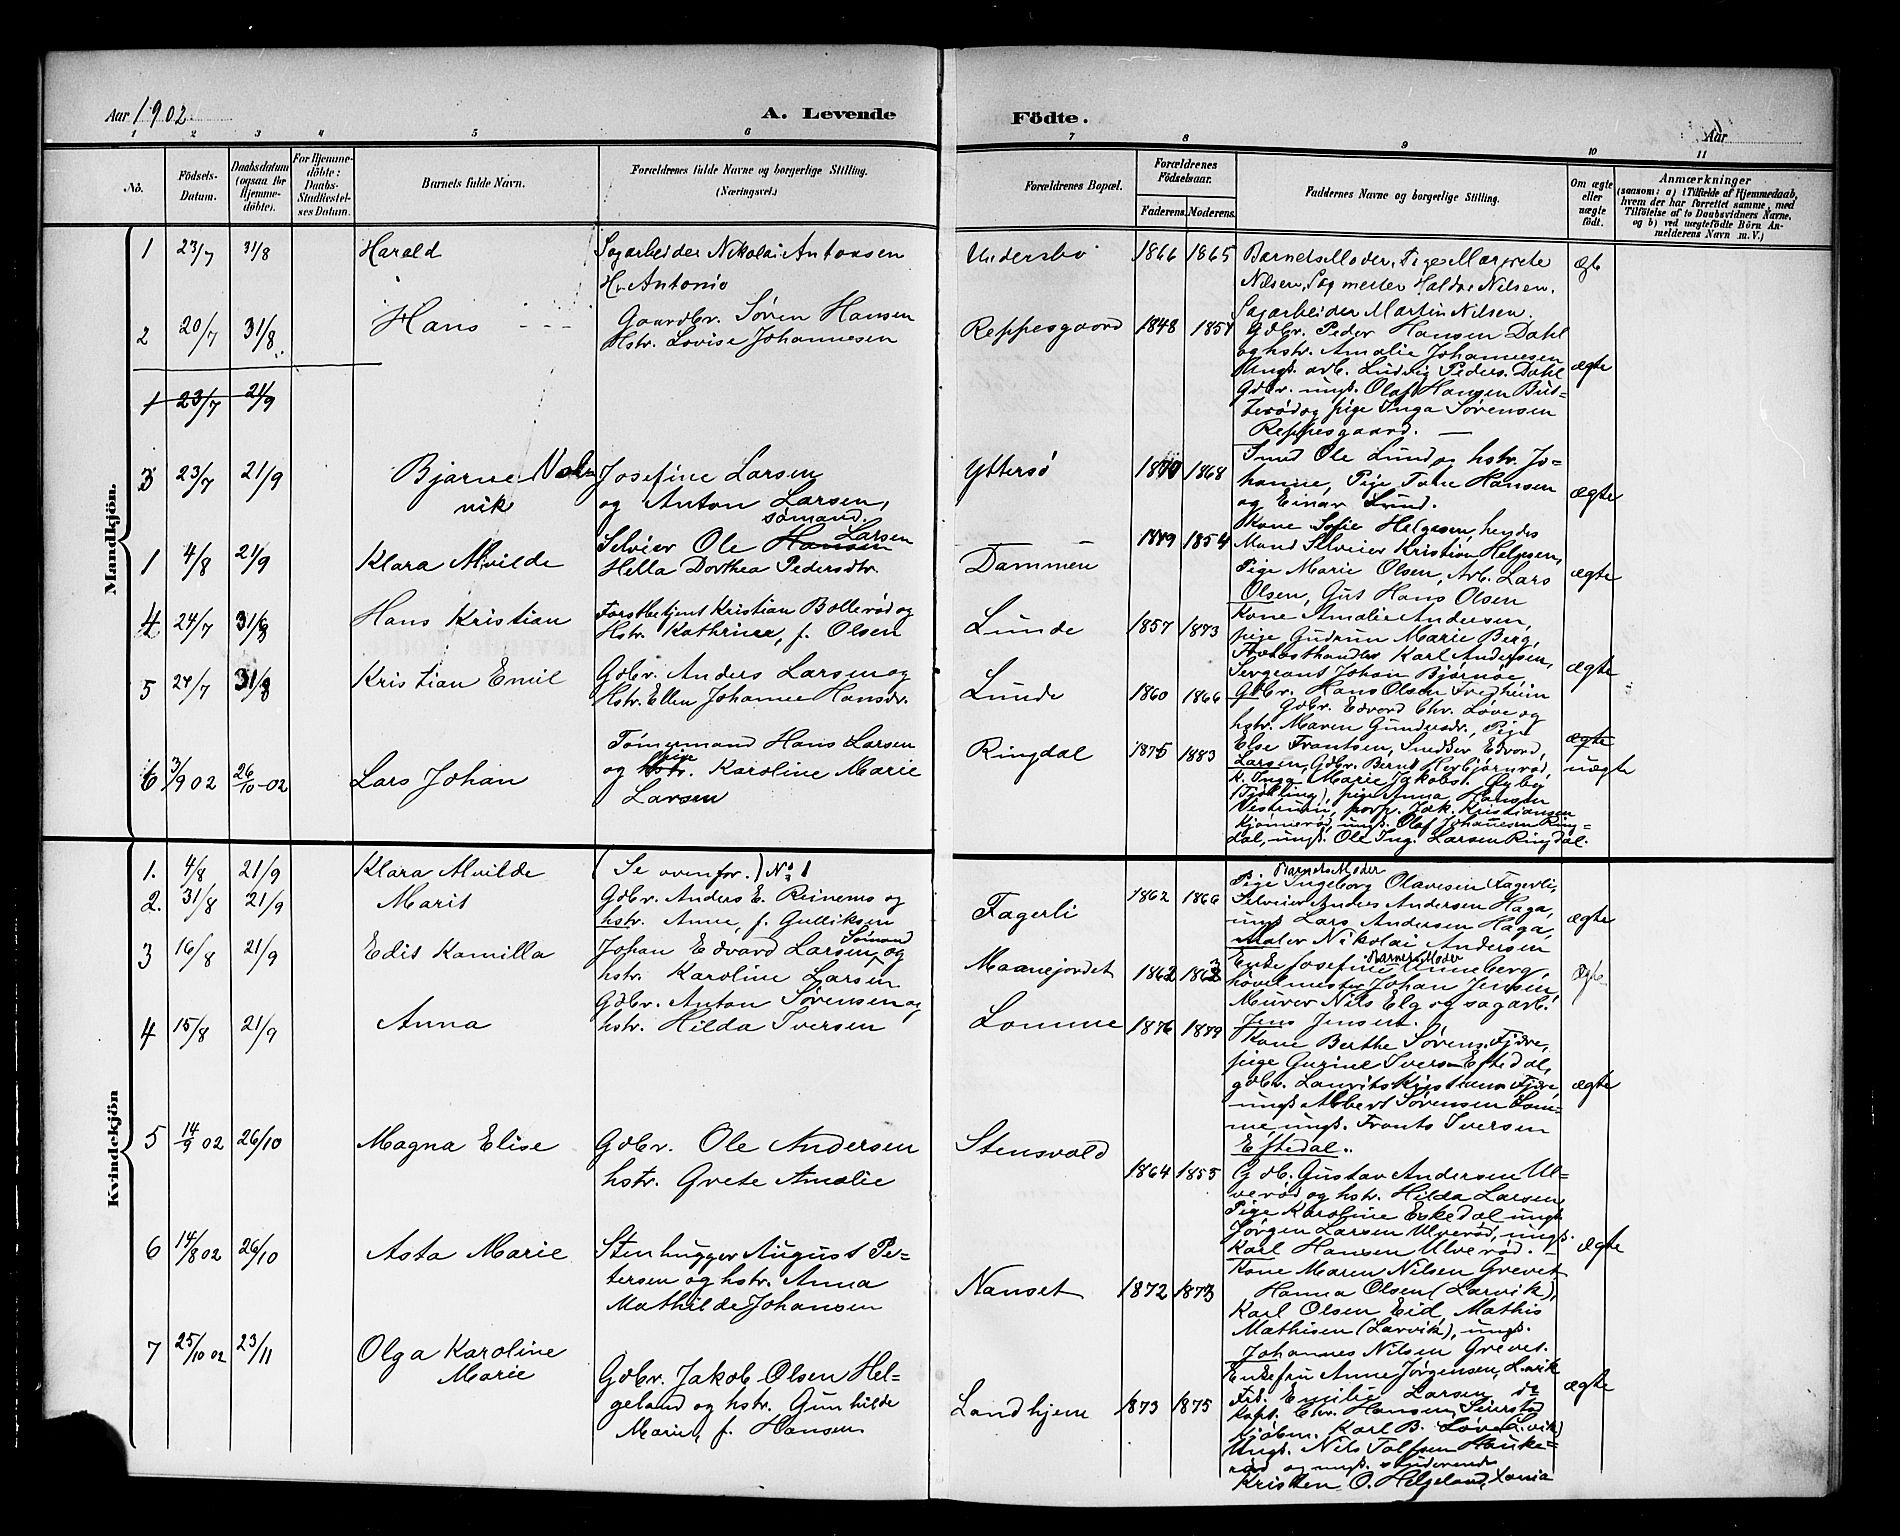 Aar 1902
A. Levende
Födte.
Aar
1 2 3 4 5 6 7 8 9 10 11
No.
Födsels-
Datum.
Daabsdatum
(ogsaa for
Hjemme-
döbte).
For Hjemme-
döbte:
Daabs-
Stadfæstel-
ses Datum.
Barnets fulde Navn.
Forældrenes fulde Navne og borgerlige Stilling.
(Næringsvei.)
Forældrenes Bopæl.
Forældrenes
Födselsaar.
Faderens. Moderens.
Faddernes Navne og borgerlige Stilling.
Om ægte
eller
uægte
födt.
Anmærkninger
(saasom: a) i Tilfælde af Hjemmedaab,
hvem der har forrettet samme, med
Tilföielse af to Daabsvidners Navne.
og b) ved uægtefödte Börn An-
melderens Navn m. V.)
Mandkjön.
1 23/7 31/8 Harald
Sagarbeider Nikolai Antonsen
H. Antonio
Undersbo 1866 1865
Barnets Moder, Pige Margrete
Nilsen, Sagmester Haldor Nilsen.
Sagarbeider Martin Nilsen.
2 20/7 31/8 Hans
Gaardbr. Søren Hansen
Hstr. Lovise Johannesen
Reppesgaard 1848 1857
Gdbr. Peder Hansen Dahl
og hstr. Amalie Johannesen
Ungk. arb. Ludvig Peders. Dahl
Gdbr. ungk. Olaf Hansen Bus-
terød og pige Inga Sørensen
Reppesgaard. —
ægte
1 23/7 21/9
3 23/7 21/9 Bjarne
vik
Josefine Larsen
og Anton Larsen,
sømand.
Yttersø 1870 1868
Smed Ole Lund og hstr. Jo-
hanne, Pige Hansen
og Einar Lund.
ægte
1 4/8 21/9 Klara Alvilde
Selveier Ole Hansen Larsen
Hella Dorthea Pedersdtr.
Dammen 1849 1854
Kone Sofie Helgesen, hendes
Mand Selveier Kristian Helgesen,
Pige Marie Olsen, Arb. Lars
Olsen, Gut Hans Olsen
ægte
4 24/7 31/8 Hans Kristian
Forstbetjent Kristian Bollerød og
Hstr. Kathrine, f. Olsen
Lunde 1857 1873
Kone Amalie Andersen,
pige Gudrun Marie Berg,
Karl Andersen,
Sergeant Johan Bjørnøe
ægte
5 24/7 31/8 Kristian Emil
Gdbr. Anders Larsen og
Hstr. Ellen Johanne Hansdr.
Lunde 1860 1866
Gdbr. Hans Olsen Fredheim
Gdbr. Edvard Chr. Løve og
hstr. Maren Gundersdr., Pige
Else Frantsen, Edvard
Larsen,
ægte
6 3/9 02 26/10-02 Lars Johan
Tömmermand Hans Larsen
og hstr. pige Karoline Marie
Larsen
Ringdal 1875 1883
Gdbr. Bernt Herbjørnrød,
k. Inga Marie Jakobs. Øyby
(Tjølling), pige Anna Hansen
Vestrum, Jak. Kristiansen
Kjønnerød, ungk. Olaf Johannesen Ring-
dal, ungk. Ole Ing. Larsen Ringdal.
uægte
Kvindekjön
1. 4/8 21/9 Klara Alvilde
(Se ovenfor.) No 1
2. 31/8 21/9 Marit
Gdbr. Anders E. Reinems og
hstr. Anne, f. Gulliksen
Fagerli 1862 1866
Barnets Moder
Pige Ingeborg Olavesen Fagerli,
Selveier Andres Andersen Haga,
ungk. Lars Andersen Haga,
Maler Nikolai Andersen
ægte
3 16/8 21/9 Edit Kamilla
Johan Edvard Larsen, Sömand og
hstr. Karoline Larsen
Maanejordet 1862 1863
Barnets Moder
Enke Josefine Unneberg,
høvelmester Johan Jensen,
Murer Nils Elg og sagarb.
Jens Jensen.
ægte
4 15/8 21/9 Anna
Gdbr. Anton Sørensen og
hstr. Hilda Iversen
Lomme 1876 1879
Kone Berthe Sørens. Fjære,
pige Gurine Iversen Eftedal,
gdbr. Lauritz Kristiansen Fjære
ungk Albert Sørensen Lom-
me ungk. Frants Iversen
Eftedal.
ægte
5 14/9 02 26/10 Magna Elise
Gdbr. Ole Andersen
hstr. Grete Amalie
Stensvold 1864 1855
Gdb. Gustav Andersen Ul-
verød og hstr. Hilda Larsen
Pige Karoline Eskedal ungk.
Jørgen Larsen Ulverød, ungk.
Karl Hansen Ulverød. —
ægte
6 14/8 02 26/10 Asta Marie
Stenhugger August Pe-
tersen og hstr. Anna
Mathilde Johansen
Nanset 1872 1873
Kone Maren Nilsen Grevet
Hanna Olsen (Larvik),
Karl Olsen Eid, Mathis
Mathisen (Larvik), ungk.
Johannes Nilsen Grevet.
7 25/10 02 23/11 Olga Karoline
Marie
Gdbr. Jakob Olsen Hel-
geland og hstr. Gunhilde
Marie, f. Hansen
Landhjem 1873 1875
Enkefru Anne Jørgensen, Larvik
Frk. Emilie Larsen do
Kapt. Chr. Hansen, Seierstad
Kjøbm. Karl B. Løve
Ungk. Nils Tolfsen Hauke-
rød og ungk. studerende
Kristen O. Helgeland,
ægte